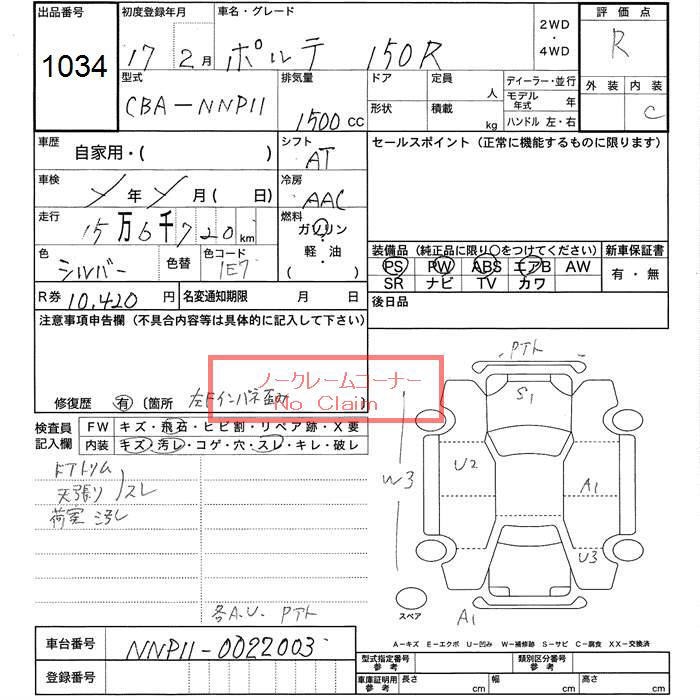 出品番号
1034
初度登録年月
17 2月
車名・グレード
ポルテ 150R
2WD
・
4WD
評価点
R
外装 内装
C
型式
CBA-NNP11
排気量
1500 cc
ドア
形状
定員 人
積載 kg
ディーラー・並行
モデル年式 年
ハンドル 左・右
車歴
自家用・( )
シフト
AT
セールスポイント (正常に機能するものに限ります)
車検
年 月( 日)
冷房
AAC
走行
15万6千720km
燃料
ガソリン
・
軽・油
( )
色
シルバー
色替
色コード
1E7
装備品(純正品に限り○をつけてください)
PS PW ABS エアB AW
SR ナビ TV カワ
新車保証書
有・無
R券 10,420円
名変通知期限 月 日
後日品
注意事項申告欄(不具合内容等は具体的に記入して下さい)
ノークレームコーナー
No Claim
修復歴 有 〔箇所 左Fインパネ歪み
検査員記入欄
FW キズ・飛石・ヒビ割・リペア跡・X要
内装 キズ・汚レ・コゲ・穴・スレ・キレ・破レ
ドアトリム
天張り スレ
荷室 汚レ
各A.U. Pアト
Pアト
S1
U2
W3
A1
U3
A1
スペア
A-キズ E-エクボ U-凹み W-補修跡 S-サビ C-腐食 XX-交換済
車台番号
NNP11-0022003
登録番号
型式指定番号 参考
類別区分番号 参考
車庫証明用 参考
長さ cm
幅 cm
高さ cm